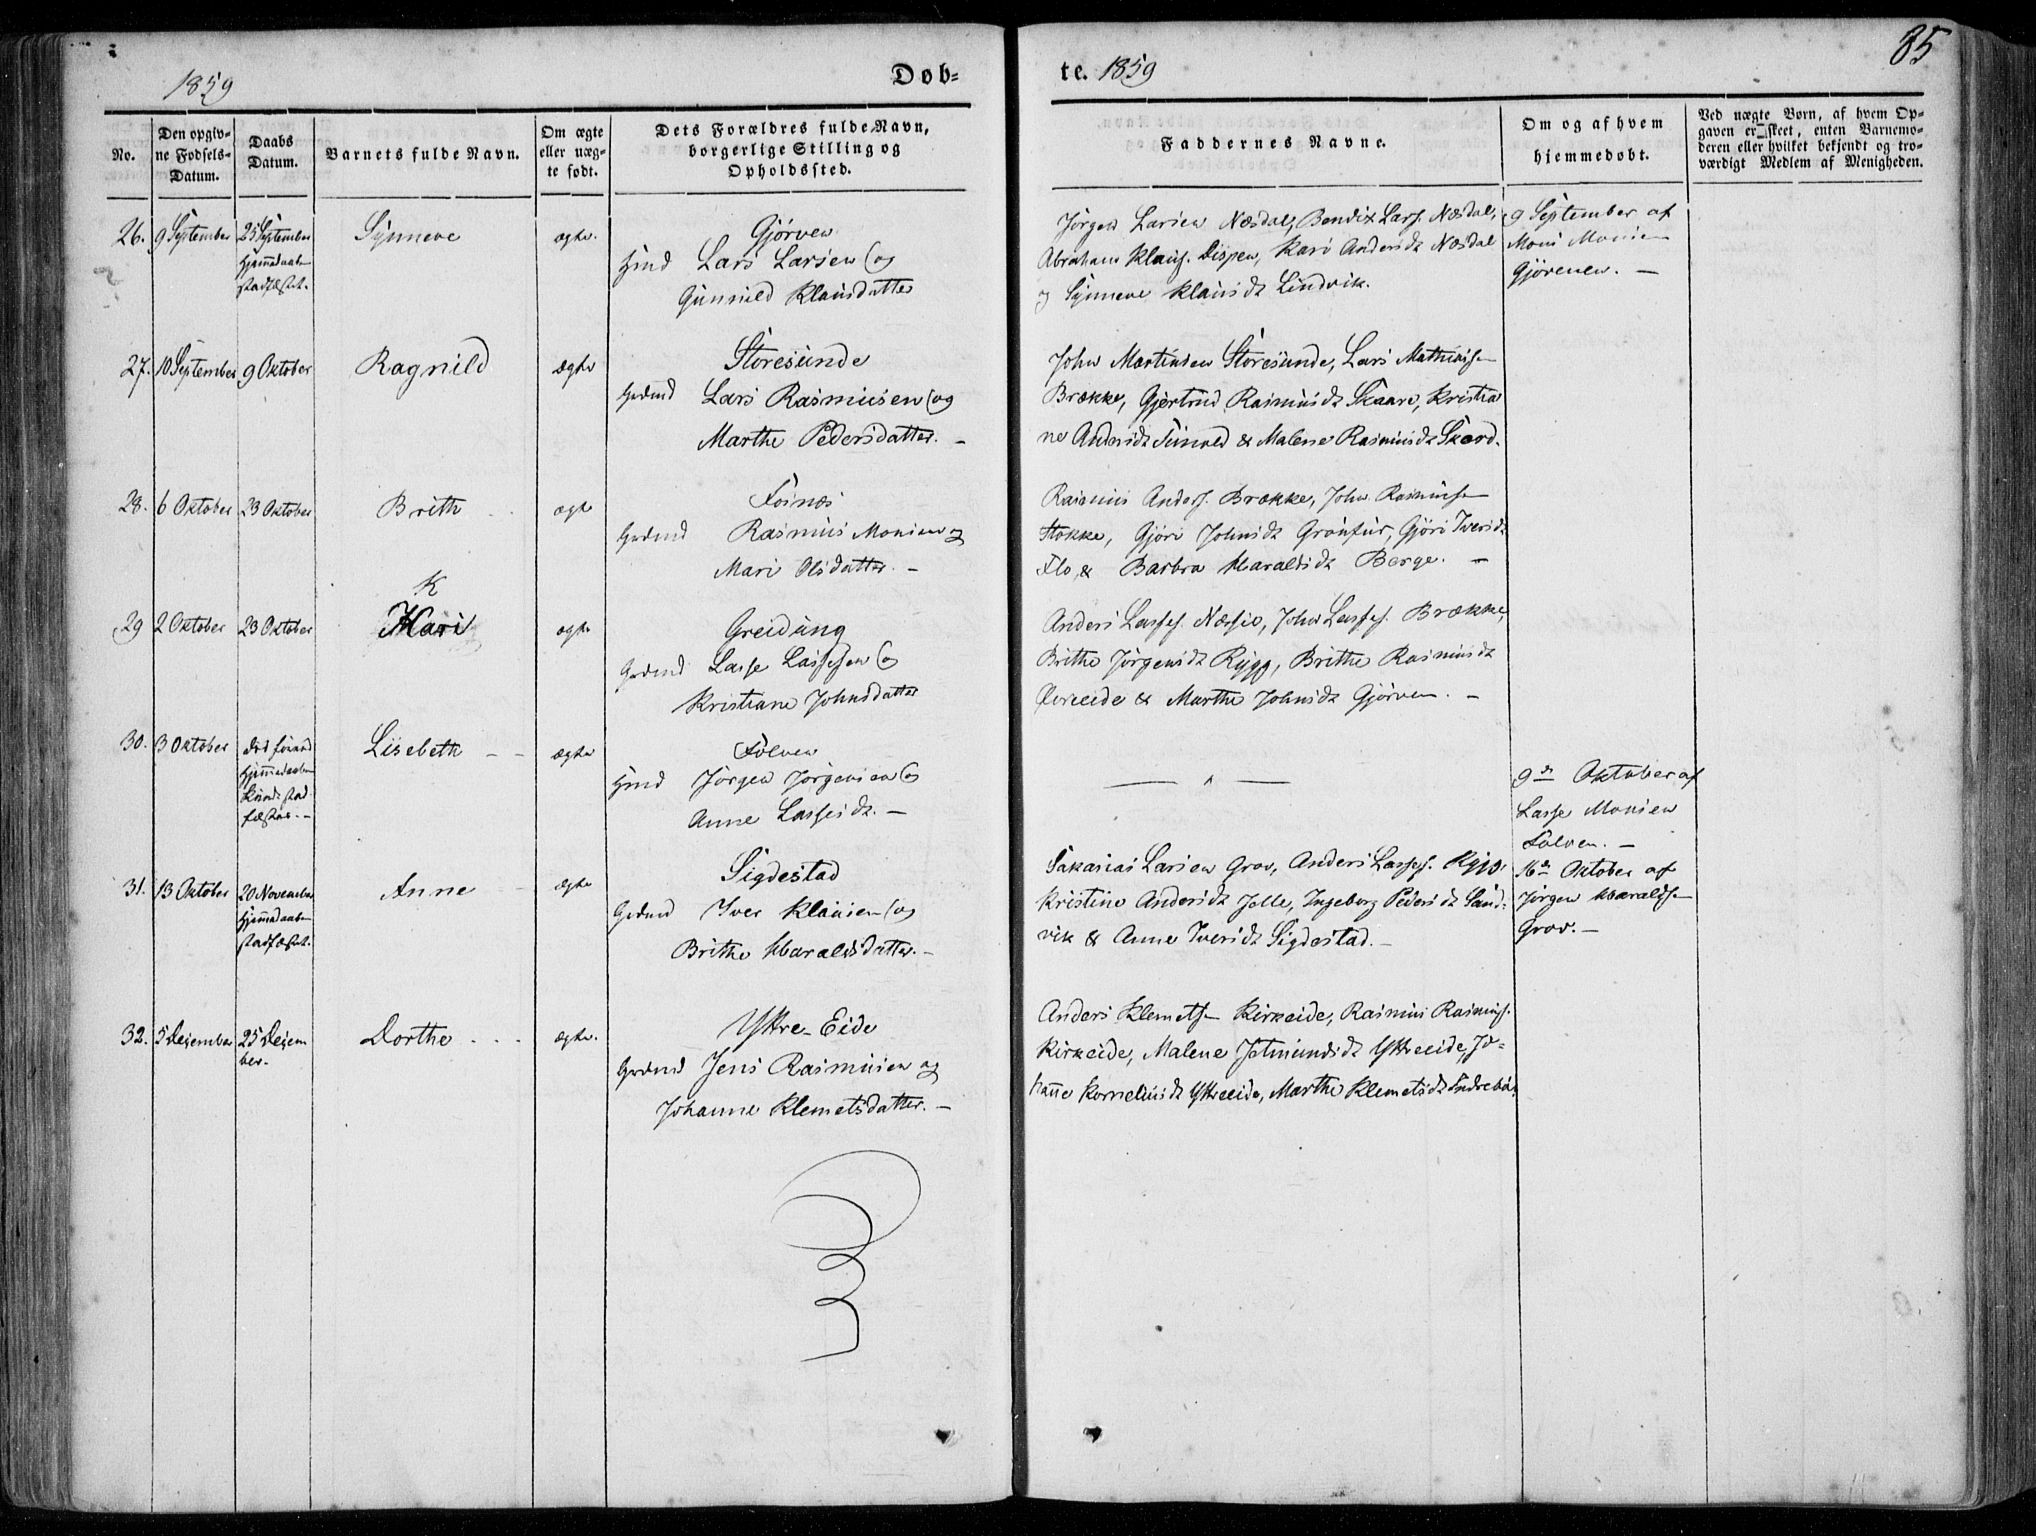 1859
Døb=
No.
Den opgiv=
ne Fødsels=
Datum.
Daabs
Datum.
Barnets fulde Navn.
Om ægte
eller uæg=
te født.
Dets Forældres fulde Navn,
borgerlige Stilling og
Opholdssted.
26.
9 September
25 September
Hjemmedaaben
stadfæstet.
Synneve
ægte.
Gjørven
Hmd Lars Larsen og
Gunnild Klausdatter
27.
10 September
9 Oktober
Ragnild
ægte
Storesunde
Grdmd Lars Rasmusen og
Marthe Pedersdatter. –
28.
6 Oktober
23 Oktober
Brith
ægte
Fosnæs
Grdmd Rasmus Monsen og
Mari Olsdatter. –
29
2 Oktober
23 Oktober
K
Kari
ægte
Greidung
Grdmd Lasse Lassesen og
Kristiane Johnsdatter
30.
3 Oktober
død førend
Hjemmedaaben
kunde stad
fæstes. –
Lisebeth
ægte
Folven
Hmd Jørgen Jørgensen og
Anne Lassesdr. –
31.
13 Oktober
20 November
Hjemmedaaben
stadfæstet.
Anne
ægte
Sigdestad
Grdmd Iver Klausen og
Brithe Haraldsdatter. –
32.
5 Dejember
25 Dejem
ber.
Dorthe
ægte.
Yttre-Eide
Grdmd Jens Rasmusen og
Johanne Klemetsdatter. –
te. 1859
85
Faddernes Navne.
Om og af hvem
hjemmedøbt.
Ved uægte Børn, af hvem Op=
gaven er skeet, enten Barnemo=
deren eller hvilket bekjendt og tro=
værdigt Medlem af Menigheden.
Jørgen Larsen Næsdal, Bendix Lars. Næsdal,
Abraham Klaus. Dispen, Kari Andersdr Næsdal
og Synneve Klausdr Lindvik.
9 September af
Mons Monsen
Gjørven. –
John Martinusen Storesunde, Lars Mathiasse
Brække, Gjertrud Rasmusdr Skaare, Kristia
ne Andersdr Sunold & Malene Rasmusdr Skord.
Rasmus Anders. Brække, John Rasmusse
Stokke, Gjøri Johnsdr Gronfur, Gjøri Iversdr
Flo, & Barbra Haraldsdr Berge. –
Anders Lasses. Næsje, John Lasses. Brække,
Brithe Jørgensdr Rygg, Brithe Rasmusdr
Øvreeide & Marthe Johnsdr Gjørven. –
9de Oktober af
Lasse Monsen
Folven. –
Sakarias Larsen Grov, Anders Lasses. Rygg,
Kristine Andersdr Jolle, Ingeborg Pedersdr Sand=
vik & Anne Iversdr Sigdestad. –
16de Oktober af
Jørgen Haraldse
Grov. –
Anders Klemetse Kirkeide, Rasmus Rasmus.
Kirkeide, Malene Jetmundsdr Yttreeide, Jo=
hanne Korneliusdr Yttreeide, Marthe Klemetsdr Indrebø.